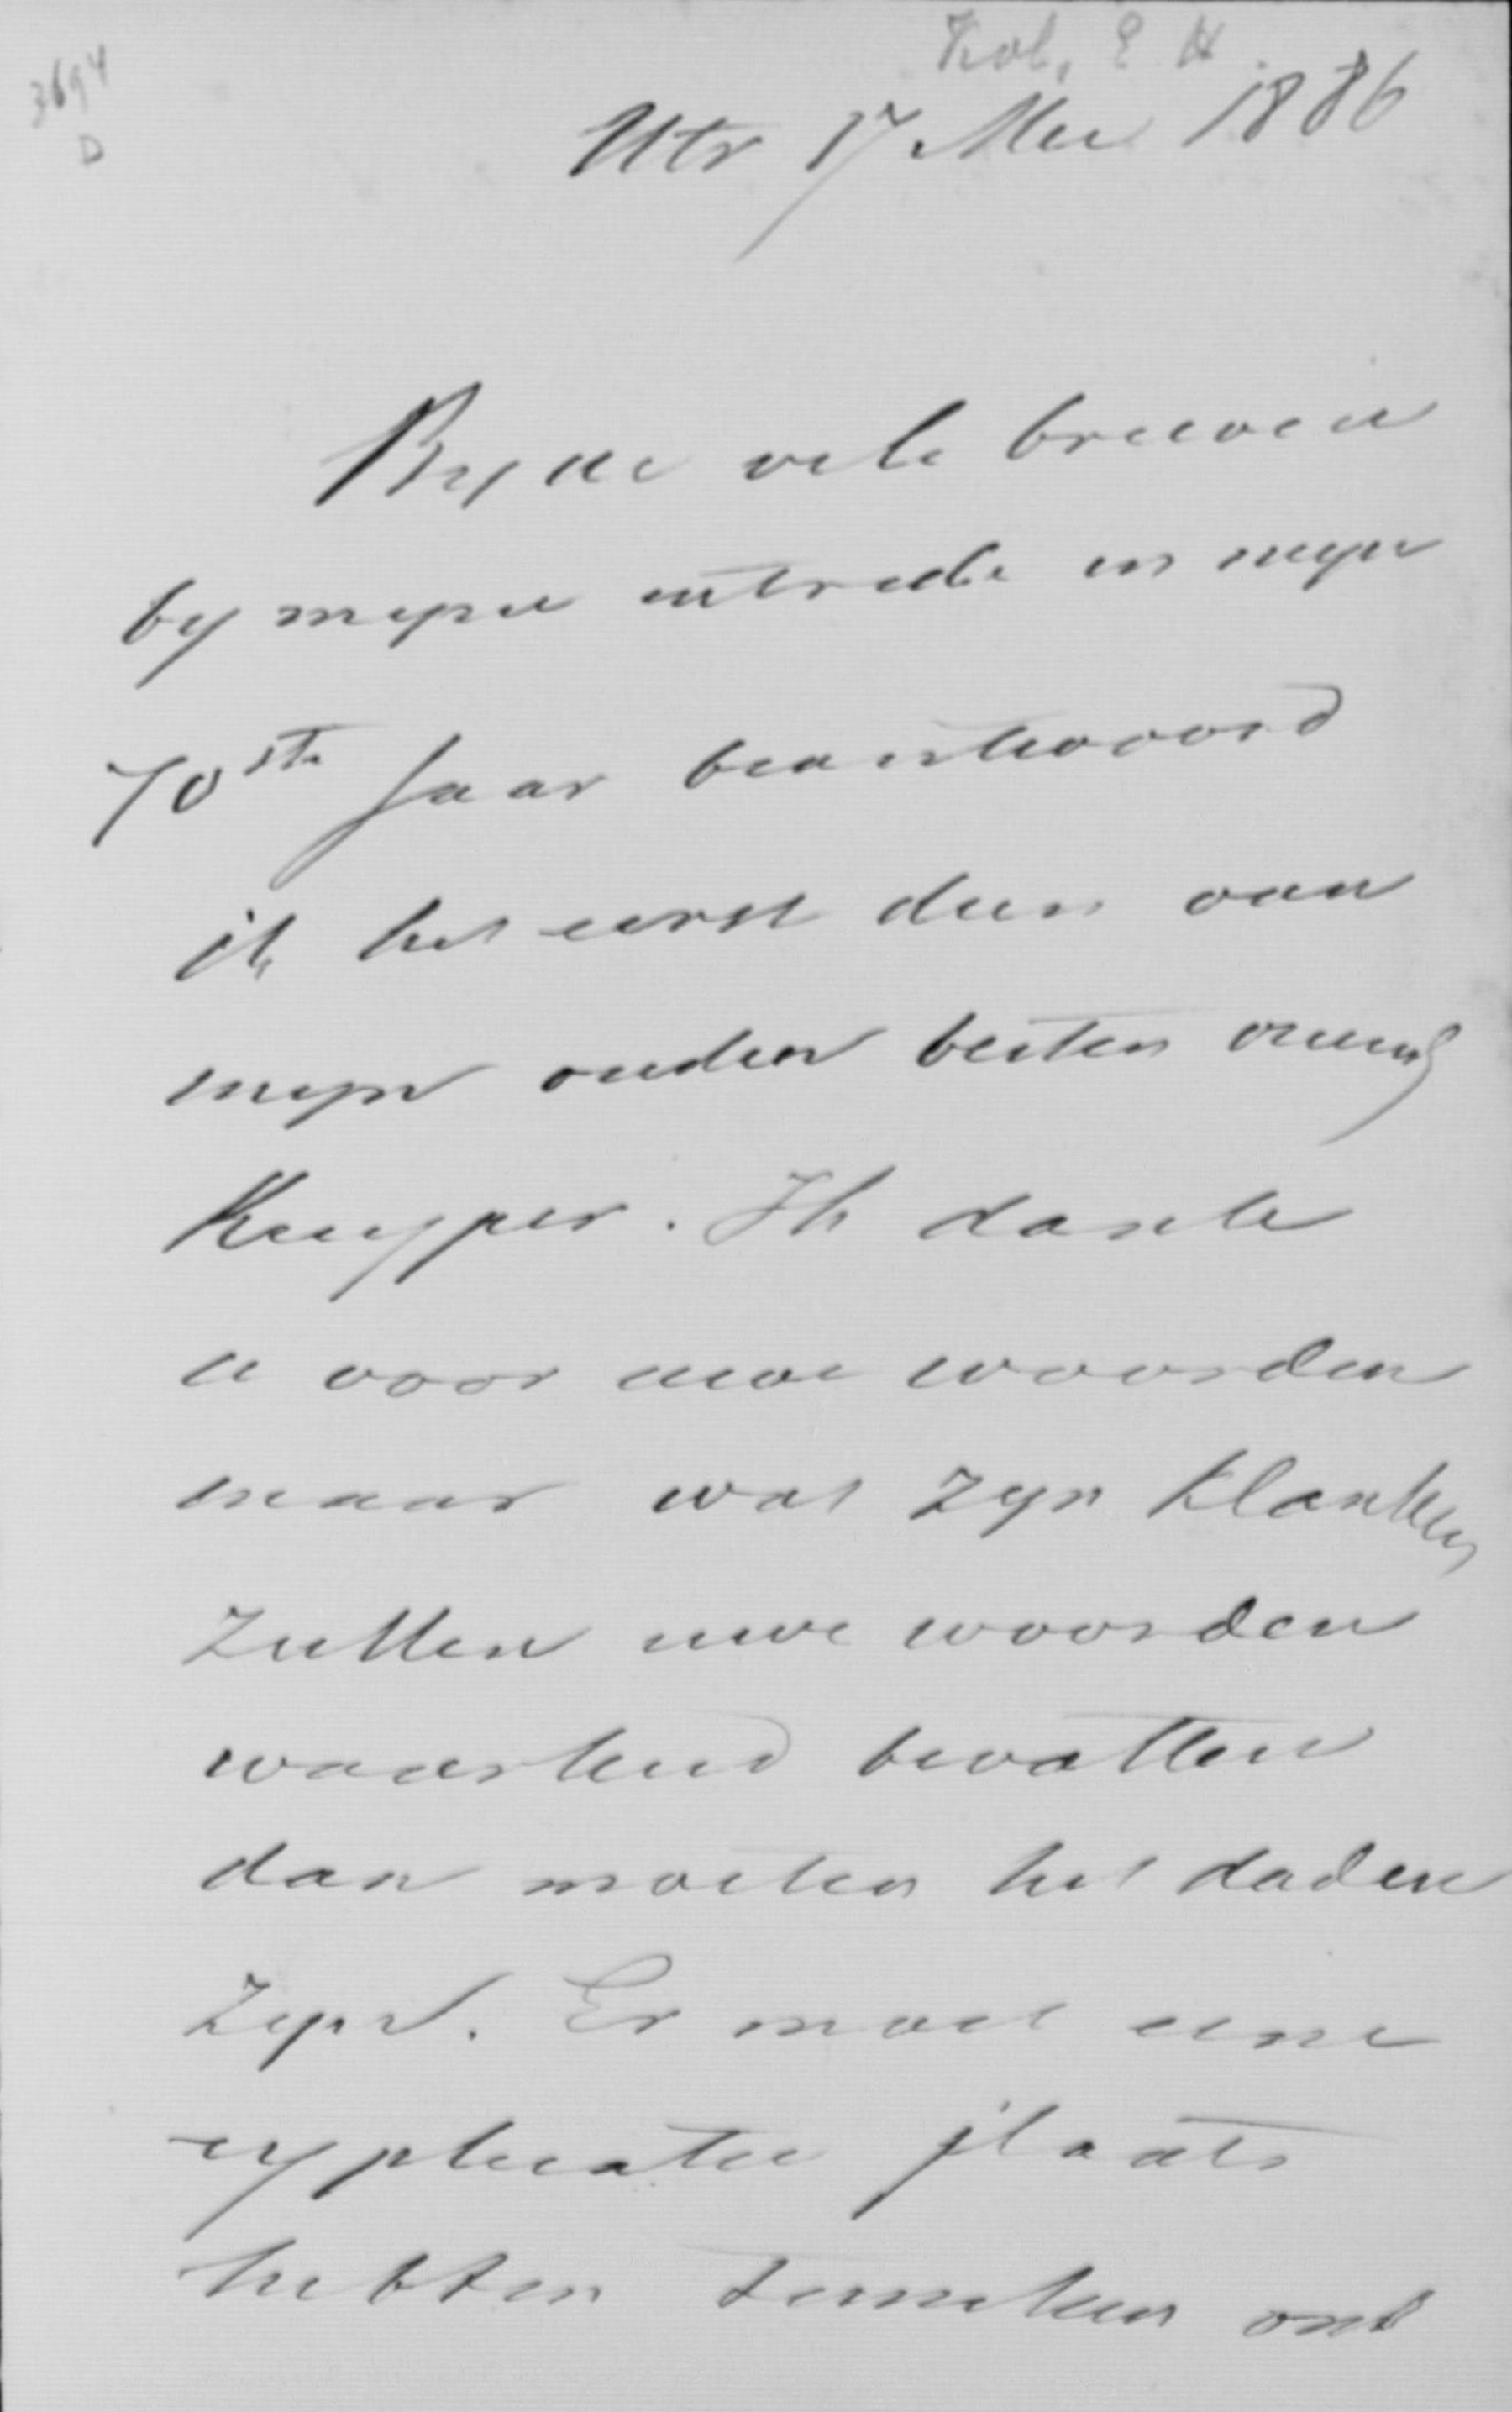 3694
D
Kol, E H
Utr 17 Mei 1886
By de vele brieven
by myne intrede in myn
70ste Jaar beantwoord
ik het eerst dien van
myn ouden besten vriend
Kuyper. Ik danke
u voor uwe woorden
maar wat zyn klanken
zullen uwe woorden
waarheid bevatten
dan moeten het daden
zyn. Er moet eene
explicatie plaats
hebben tusschen ons